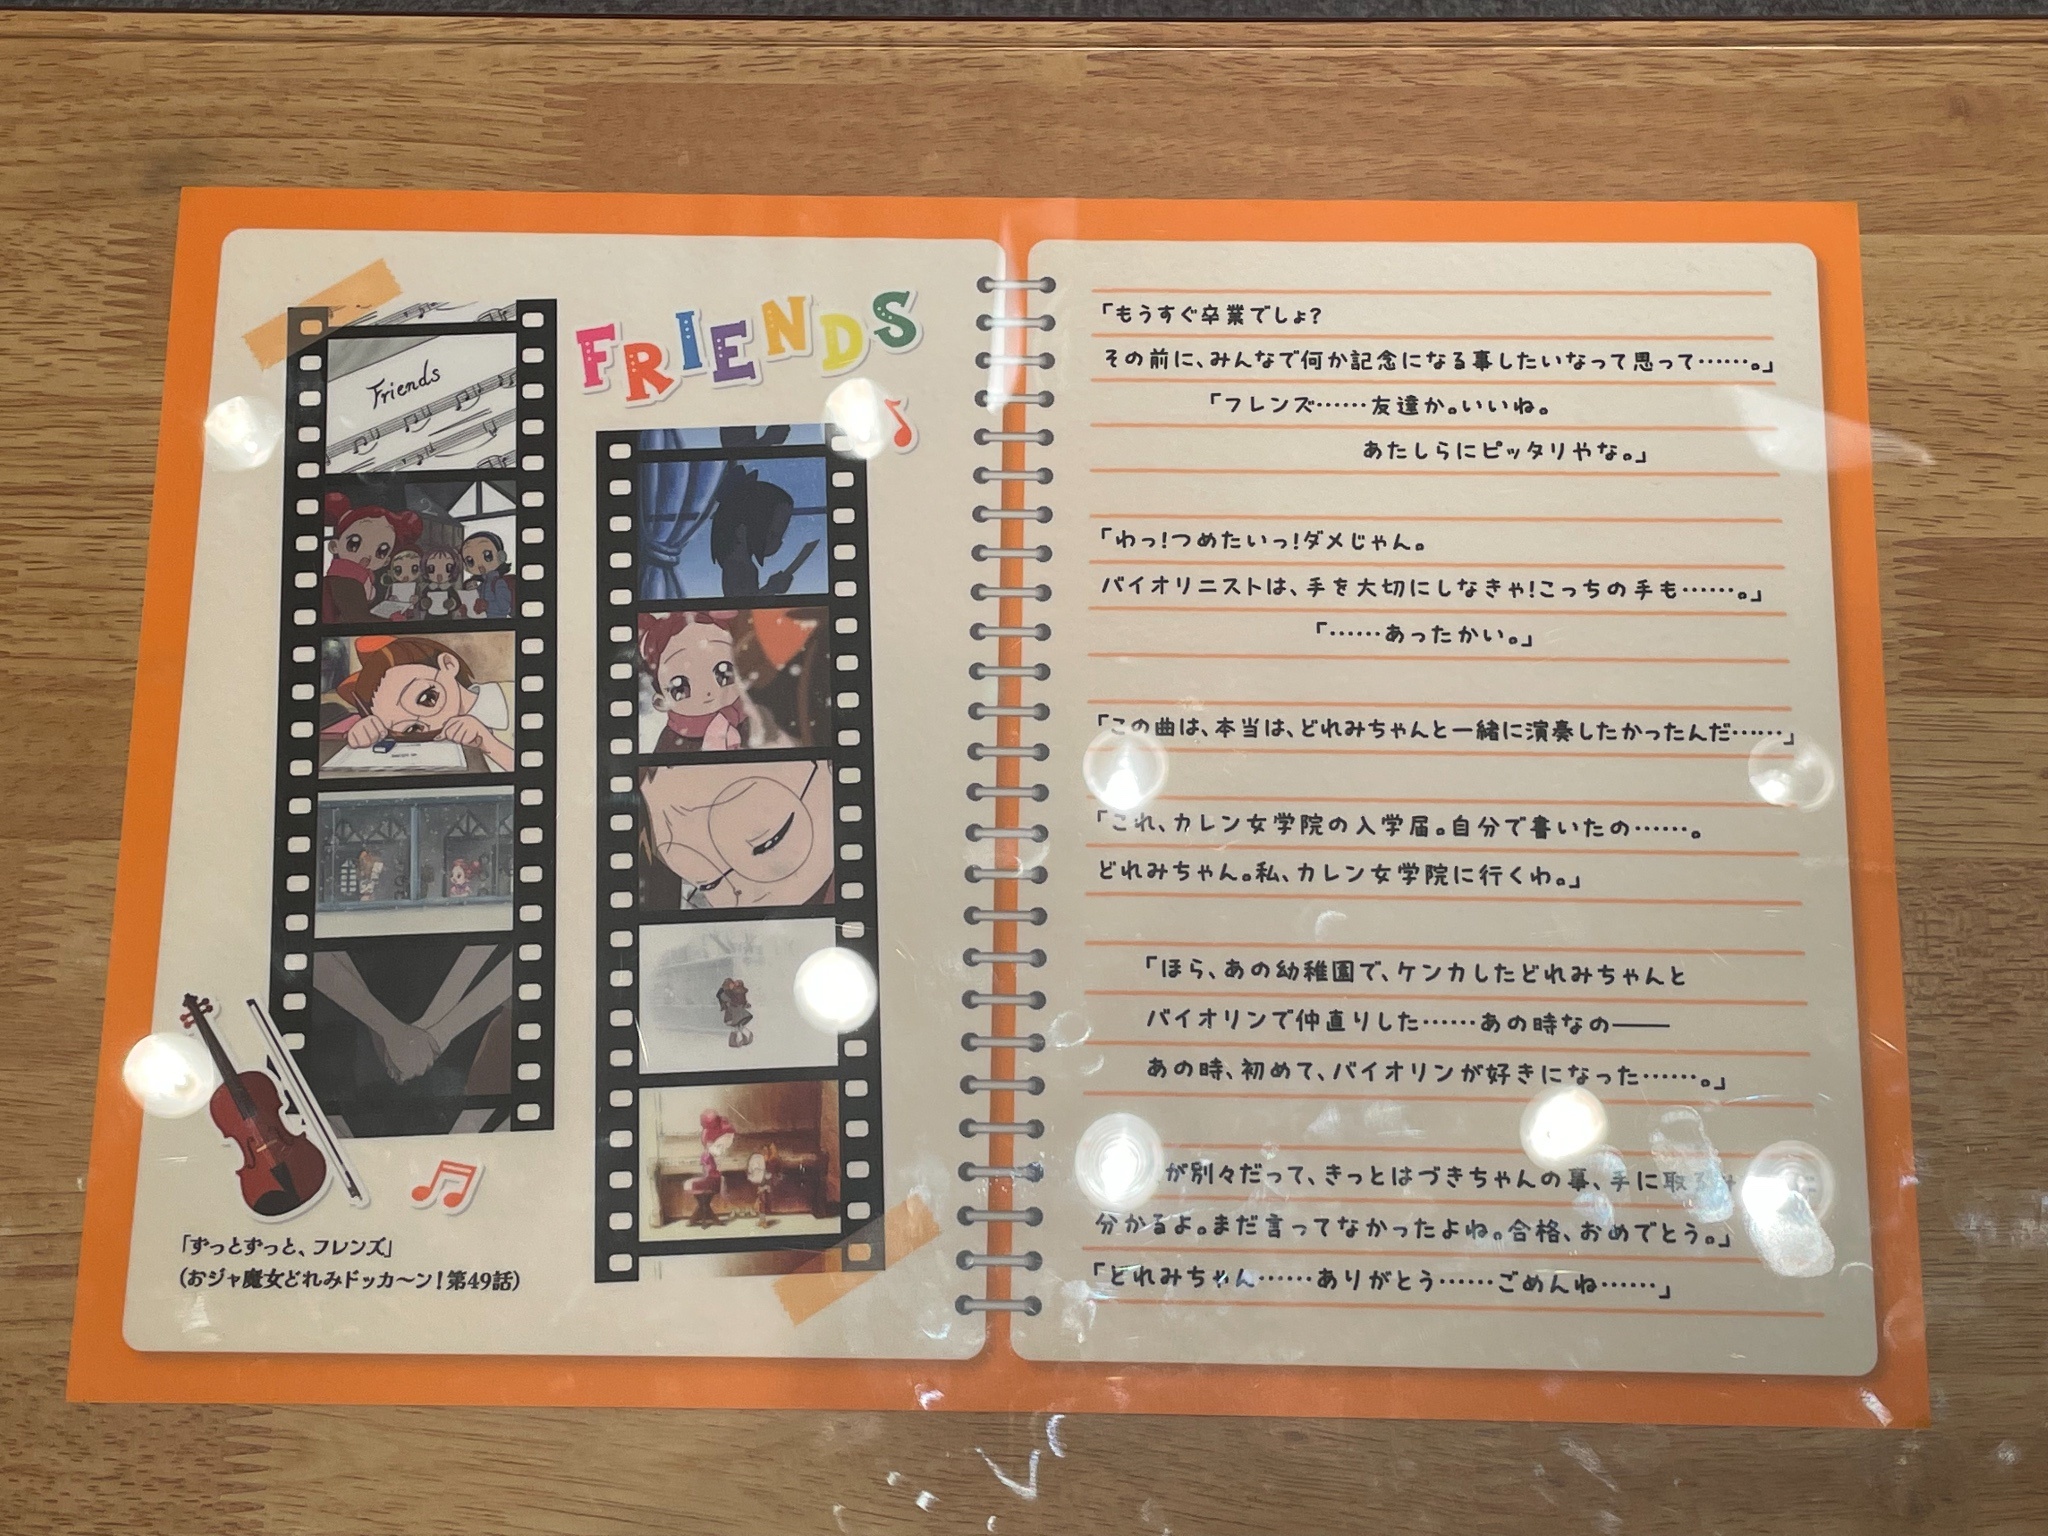 FRIENDS
Friends
「ずっとずっと、フレンズ」
(おジャ魔女どれみドッカ〜ン!第49話)
「もうすぐ卒業でしょ?
その前に、みんなで何か記念になる事したいなって思って……。」
「フレンズ……友達か。いいね。
あたしらにピッタリやな。」
「わっ!つめたいっ!ダメじゃん。
バイオリニストは、手を大切にしなきゃ!こっちの手も……。」
「……あったかい。」
「この曲は、本当は、どれみちゃんと一緒に演奏したかったんだ……」
「これ、カレン女学院の入学届。自分で書いたの……。
どれみちゃん。私、カレン女学院に行くわ。」
「ほら、あの幼稚園で、ケンカしたどれみちゃんと
バイオリンで仲直りした……あの時なの――
あの時、初めて、バイオリンが好きになった……。」
が別々だって、きっとはづきちゃんの事、手に取る
分かるよ。まだ言ってなかったよね。合格、おめでとう。」
「どれみちゃん……ありがとう……ごめんね……」